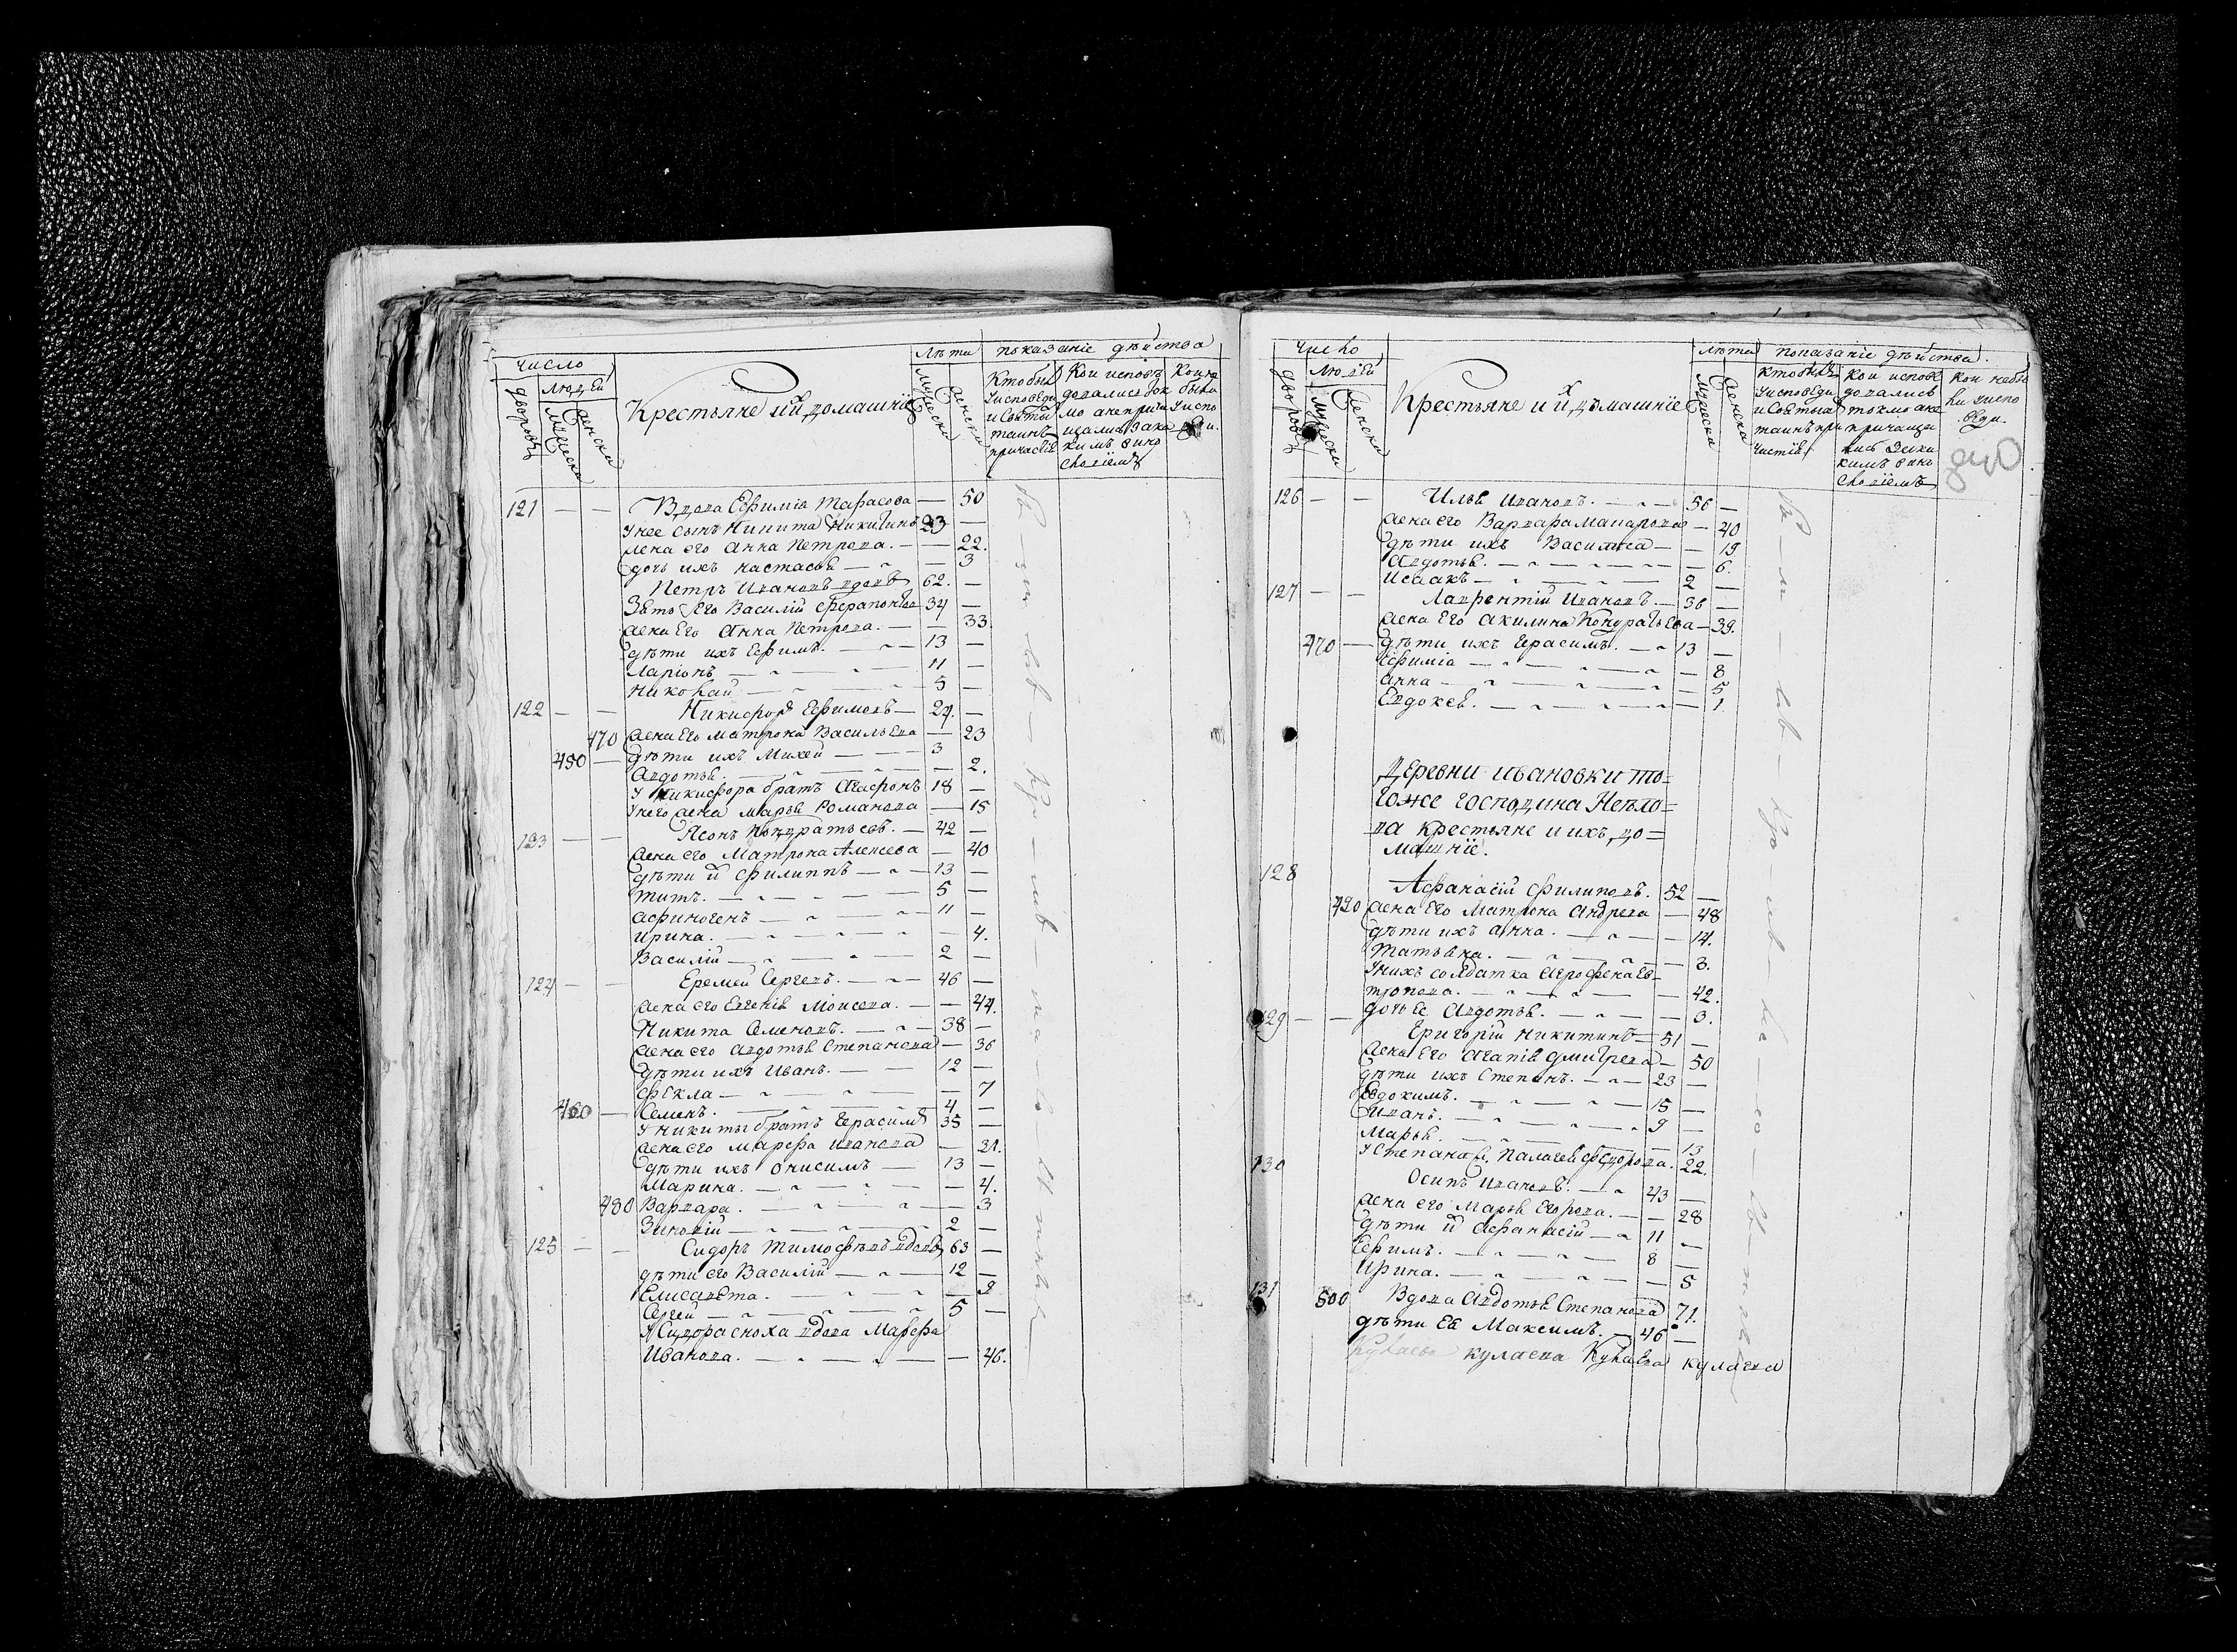 число
людей
дворовъ
мужеска
женска
Крестьяне и ихъ домашнїе
лѣта
мужеска
женска
показанїе дѣйства
Кто были
у исповѣди
и святыхъ
таинъ
причастїя
Кои исповѣ
довались ток
мо а не прича
щались за ка
кимъ вино
словїемъ
Кои не
были
у испо
вѣди.
121 — — Вдова Ефимїа Тарасова — 50
У нее сынъ Никита Никитинъ 23 —
жена его Анна Петрова. — — 22.
дочь ихъ Настасья — — 3
Петръ Ивановъ вдовъ 62. —
Зять его Василїй Ферапонтовъ 34 —
жена Его Анна Петрова. — — 33
дѣти ихъ Ефимъ. — 13 —
Ларїонъ — 11 —
Николай — 5 —
122 — — Никифоръ Ефимовъ — 24. —
470 жена Его Матрона Васильева — 23
450 — дѣти ихъ Михей — 3
Авдотья. — — 2.
У Никифора братъ Агафонъ 18 —
У него жена Марья Романова — 15
123 — — Ясонъ Кондратьевъ. — 42 —
жена его Матрона Алексева — 40
дѣти ихъ Филиппъ — 13 —
Титъ. — 5 —
Афиногенъ — 11 —
Ирина. — — 4.
Василїй — 2 —
124 — — Еремей Сергевъ. — 46 —
жена его Евгенїя Моисева. — — 44.
Никита Семеновъ. — 38 —
жена его Авдотья Степанова — 36
дѣти ихъ Иванъ. — 12 —
Фекла — — 7
460 — Семенъ. — 4 —
У Никиты братъ Герасимъ 35 —
жена его Марфа Иванова — 31.
дѣти ихъ Онисимъ 13 —
Марина. — — 4.
480 Варвара. — — 3
Зиновїй — 2 —
125 — — Сидоръ Тимофѣевъ вдовъ 63 —
дѣти его Василїй — 12 —
Елисавета. — — 9
Сергей — 5 —
У Сидора сноха вдова Марфа
Иванова. — — 46.
число
людей
дворовъ
мужеска
женска
Крестьяне и ихъ домашнїе
лѣта
мужеска
женска
показанїе дѣйства.
кто были
у исповѣди
и святыхъ
таинъ при
частїя
кои испове
довались
токмо а не
прича­ща
лись за ка
кимъ вино
словїемъ
кои небы
ли у испо
вѣди.
126 — — Илья Ивановъ. — 56 —
жена его Варвара Макарова — 40
дѣти ихъ Василиса — — 19
Авдотья. — — 6.
Исаакъ — 2 —
127 — — Лаврентїй Ивановъ. — 36 —
жена Его Акилина Кондратьева — 39.
470 — дѣти ихъ Герасимъ. — 13 —
Ефимїа — — 8
Анна — — 5
Евдокея. — — 1.
Деревни Ивановки то=
гоже господина Неело=
ва крестьяне и ихъ до=
машнїе.
128 Афанасїй Филиповъ. 52 —
490 жена Его Матрона Андрева — 48
дѣти ихъ Анна. — — 14.
Татьяна. — — 3.
У нихъ солдатка Агрофена Ев=
тропова. — — 42.
дочь Ее Авдотья. — — 3.
129 — — Григорїй Никитинъ — 51 —
жена Его Агапїя Дмитрева — 50
дѣти ихъ Степанъ. — 23 —
Евдокимъ. — 15 —
Иванъ. — 9 —
Марья. — — 13
У Степана ж. Палагея Федорова. 22.
130 Осипъ Ивановъ. — 43 —
жена его Марья Егорова. — — 28
дѣти ихъ Афанасїй — 11 —
Ефимъ. — 8 —
Ирина. — — 5
131 500 Вдова Авдотья Степанова 71.
дѣти Её Максимъ. — 46 —
Кулаева кулаева Кулаева кулаева